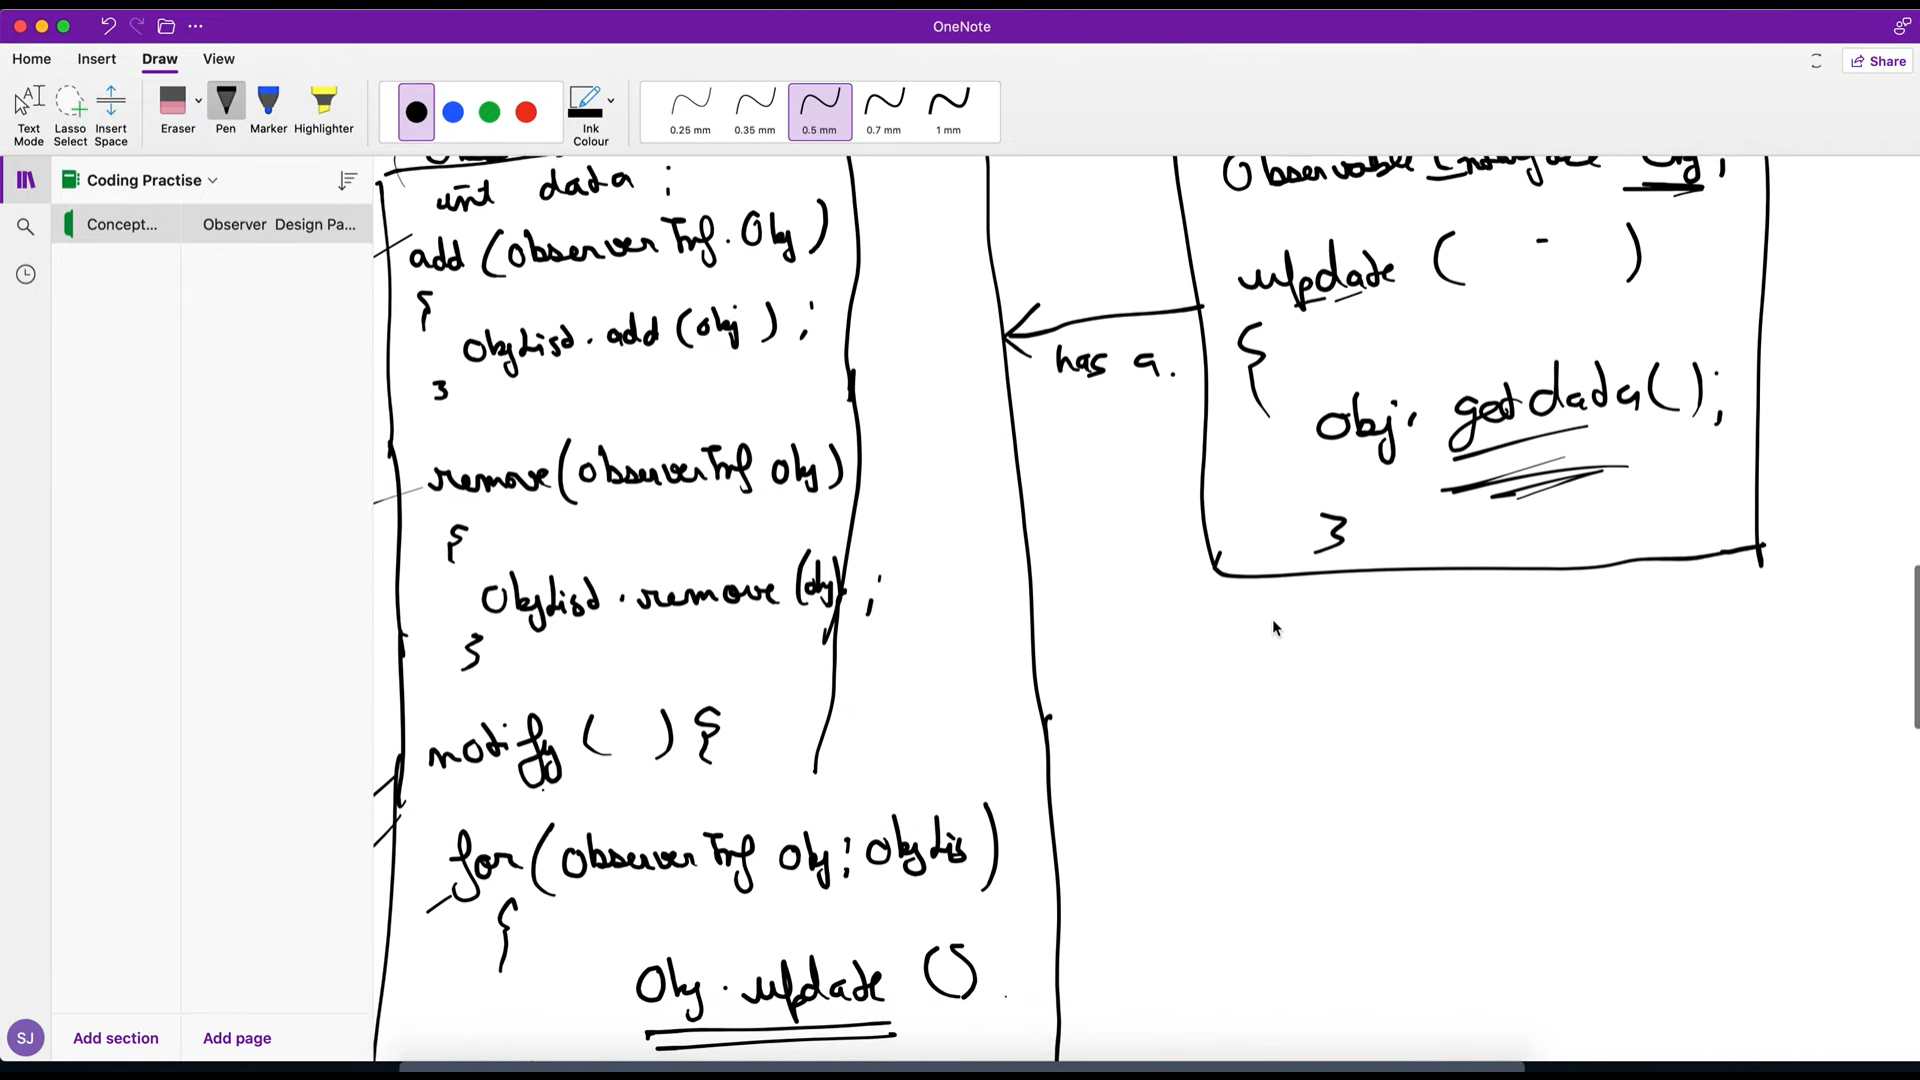 OneNote
Home Insert Draw View
Share
Text Mode
Lasso Select
Insert Space
Eraser
Pen
Marker
Highlighter
Ink Colour
0.25 mm
0.35 mm
0.5 mm
0.7 mm
1 mm
Coding Practise
Concept...
Observer Design Pa...
int data ;
add (Observer Inf. Obj)
{
ObjList.add (obj) ;
}
remove(ObserverInf obj)
{
ObjList.remove (obj) ;
}
notify ( ) {
for(Observer Inf Obj : ObjLis)
{
Obj.update ()
has a.
Observable Interface Obj ;
update ( - )
{
obj. getdata();
}
SJ
Add section
Add page